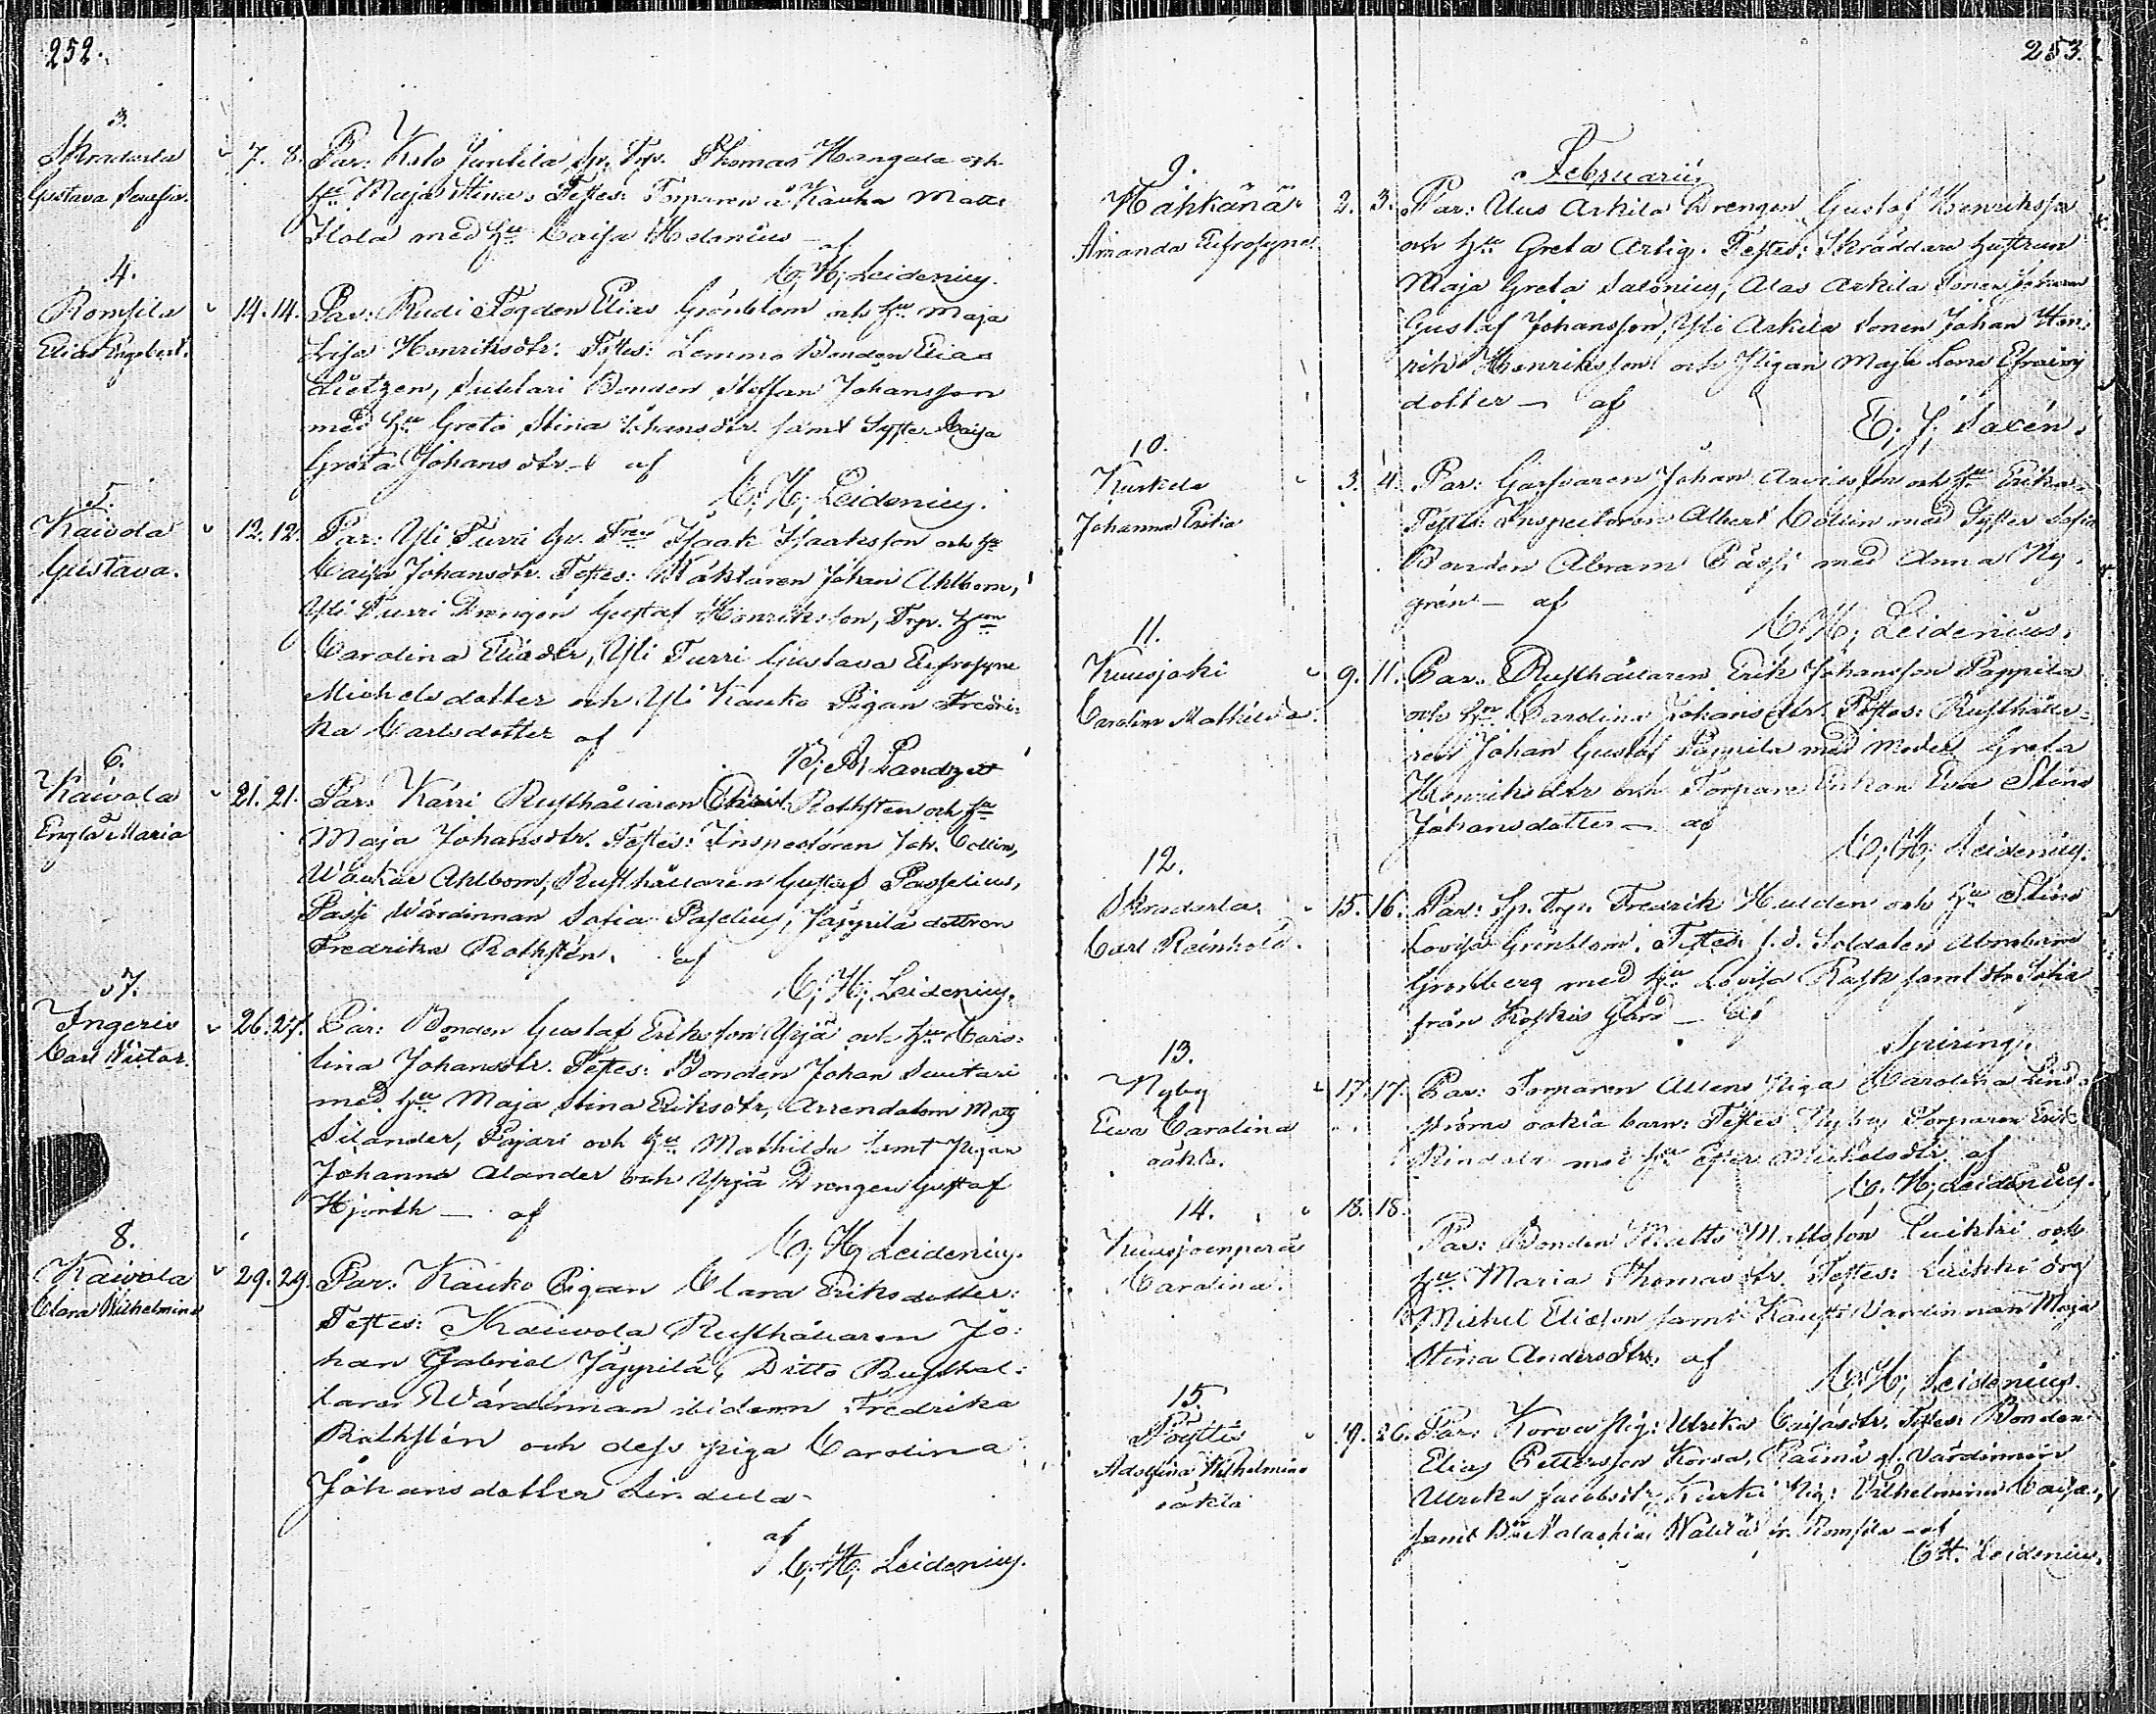 252.
3.
Skradarla
Gustava Serafia.
7. 8. Par: Kslo Juntila Sp. Torp. Thomas Hangala och
hu Maja Stina. Testes: Torparen å Kauka Matts
Ilola med hu Caisa Helenius
af
C. H. Leidenius.
4.
Romsila
Elias Engelbert.
14. 14. Par: Rudi Fogden Elias Grönblom och hu Maja
Lisa Henriksdtr. Testes: Lemmo Bonden Elias
Lietzen, Bonden Staffan Johansson
med hu Greta Stina Johansdtr samt Syster Caisa
Greta Johansdtr af
C. H. Leidenius.
5.
Kaivola
Gustava.
12. 12. Par: Yli Turri Isaak Isaaksson och hu
Caisa Johansdtr. Testes: Wäktaren Johan Ahlbom,
Yli Turri Drengen Gustaf Henriksson, Torp.
Carolina Eliædtr, Yli Turri Gustava Eufrosyne
Michelsdotter och Yli Kauko Pigan Fredri-
ka Carlsdotter af
Landzett
6.
Kaivola
Engla Maria
21. 21. Par: Kärri Rusthållaren Rothsten och hu
Maja Johansdtr. Testes: Inspectoren Joh. Collin,
Ahlbom, Rusthållaren Gustaf Passelius,
Passi Wärdinnan Sofia Paselius, Jäppilä dottren
Fredrika Rothstén. af
C. H. Leidenius.
7.
Ingeris
Carl Victor.
26. 27. Par: Bonden Gustaf Eriksson Yrjä och hu Caro-
lina Johansdtr. Testes: Bonden Johan Suutari
med hu Maja Stina Eriksdtr, Arrendatorn Matts
Silander, Pajari och hu Mathilda samt pigan
Johanna Alander och Yrjä Drengen Gustaf
Hjorth af
C. H. Leidenius.
8.
Kaivola
Clara Wilhelmina
29. 29. Par: Kauko Pigan Clara Eriksdotter:
Testes: Kaivola Rusthållaren Jo-
han Gabriel Jäppilä, Ditto Rusthål-
lare Wärdinnan ibidem Fredrika
Rothstén och dess piga Carolina
Johansdotter Lindula
af
C. H. Leidenius.
253.
Februarii.
9.
Mähkänä
Amanda Eufrosyne.
2. 3. Par: Alas Arkila Drengen Gustaf Henriksson
och hu Greta Artig. Testes: Skräddare hustrun
Maja Greta Salonius, Alas Arkila Sonen Johan
Gustaf Johansson, Yli Arkila Sonen Johan Hen-
rik Henriksson och Pigan Maja Lena Efraims
dotter af
E. J. Saxén.
10.
Kurkela
Johanna
3. 4. Par: Garfvaren Johan Arvidsson och hu Erika.
Testes: Inspectoren Albert Collin med Syster Sofia
Bonden Abram Pässi med Anna Ny-
grén af
C. H. Leidenius.
11.
Kuusjoki
Carolina Mathilda.
9. 11. Par: Rusthållaren Erik Johansson Pappila
och hu Carolina Johansdtr. Testes: Rusthålla-
ren Johan Gustaf Pappila med Modern Greta
Henriksdtr och Torpare Enkan Eva Stina
Johansdotter af
C. H. Leidenius.
12.
Skradarla
Carl Reinhold.
15. 16. Par: Sp. Torp. Fredrik Hulden och hu Stina
Lovisa Grönblom. Testes: f. d. Soldaten Abraham
Grönberg med hu Lovisa Rask samt
från Koskis Gård af
Spiring.
13.
Nyby
Eva Carolina
oäkta.
17. 17. Par: Torparen Allens Piga Carolina Lind-
ströms oäkta barn: Testes Nyby Torparen Erik
Rindell med hu Ester Michelsdtr af
C. H. Leidenius.
14.
Kuusjoenperä
Carolina.
18. 18.
Par: Bonden Matts Mattsson Luikki och
hu Maria Thomasdtr. Testes: Luikki drg
Michel Eliæson samt Värdinnan Maja
Stina Andersdtr. af
C. H. Leidenius.
15.
Pöytiö
Adolfina Wilhelmina
oäkta
19. 26. Par: Korva Pig: Ulrika Testes: Bonden
Elias Pettersson Korva, Värdinnan
Ulrika Jacobsdtr, Kurki Pig: Wilhelmina Caisa,
samt Malachias Romsila af
C. H. Leidenius.